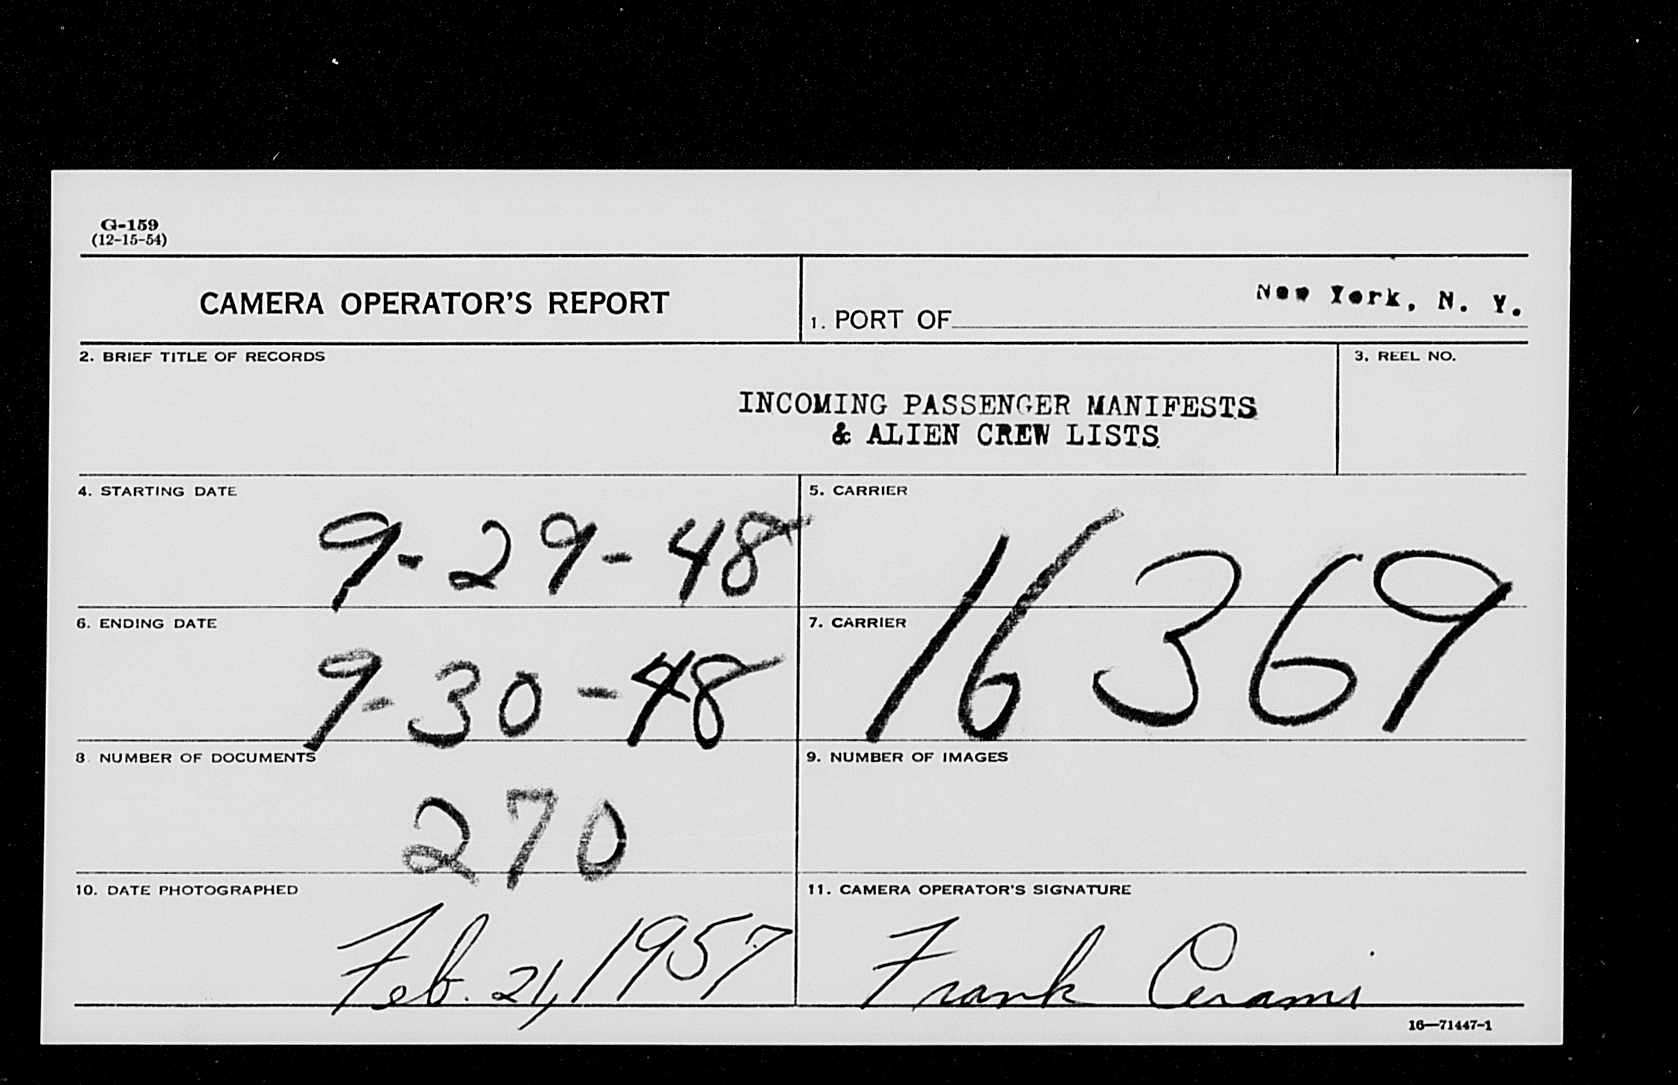 G-159
(12-15-54)
CAMERA OPERATOR'S REPORT
1. PORT OF New York, N. Y.
2. BRIEF TITLE OF RECORDS
INCOMING PASSENGER MANIFESTS
& ALIEN CREW LISTS
3. REEL NO.
4. STARTING DATE
9-29-48
5. CARRIER
6. ENDING DATE
9-30-48
7. CARRIER
16369
8 NUMBER OF DOCUMENTS
270
9. NUMBER OF IMAGES
10. DATE PHOTOGRAPHED
Feb. 21, 1957
11. CAMERA OPERATOR'S SIGNATURE
Frank Cerami
16—71447-1